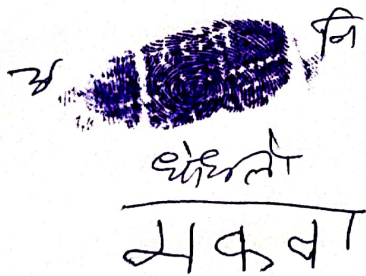 अ नि
धोंधलो
मकवा